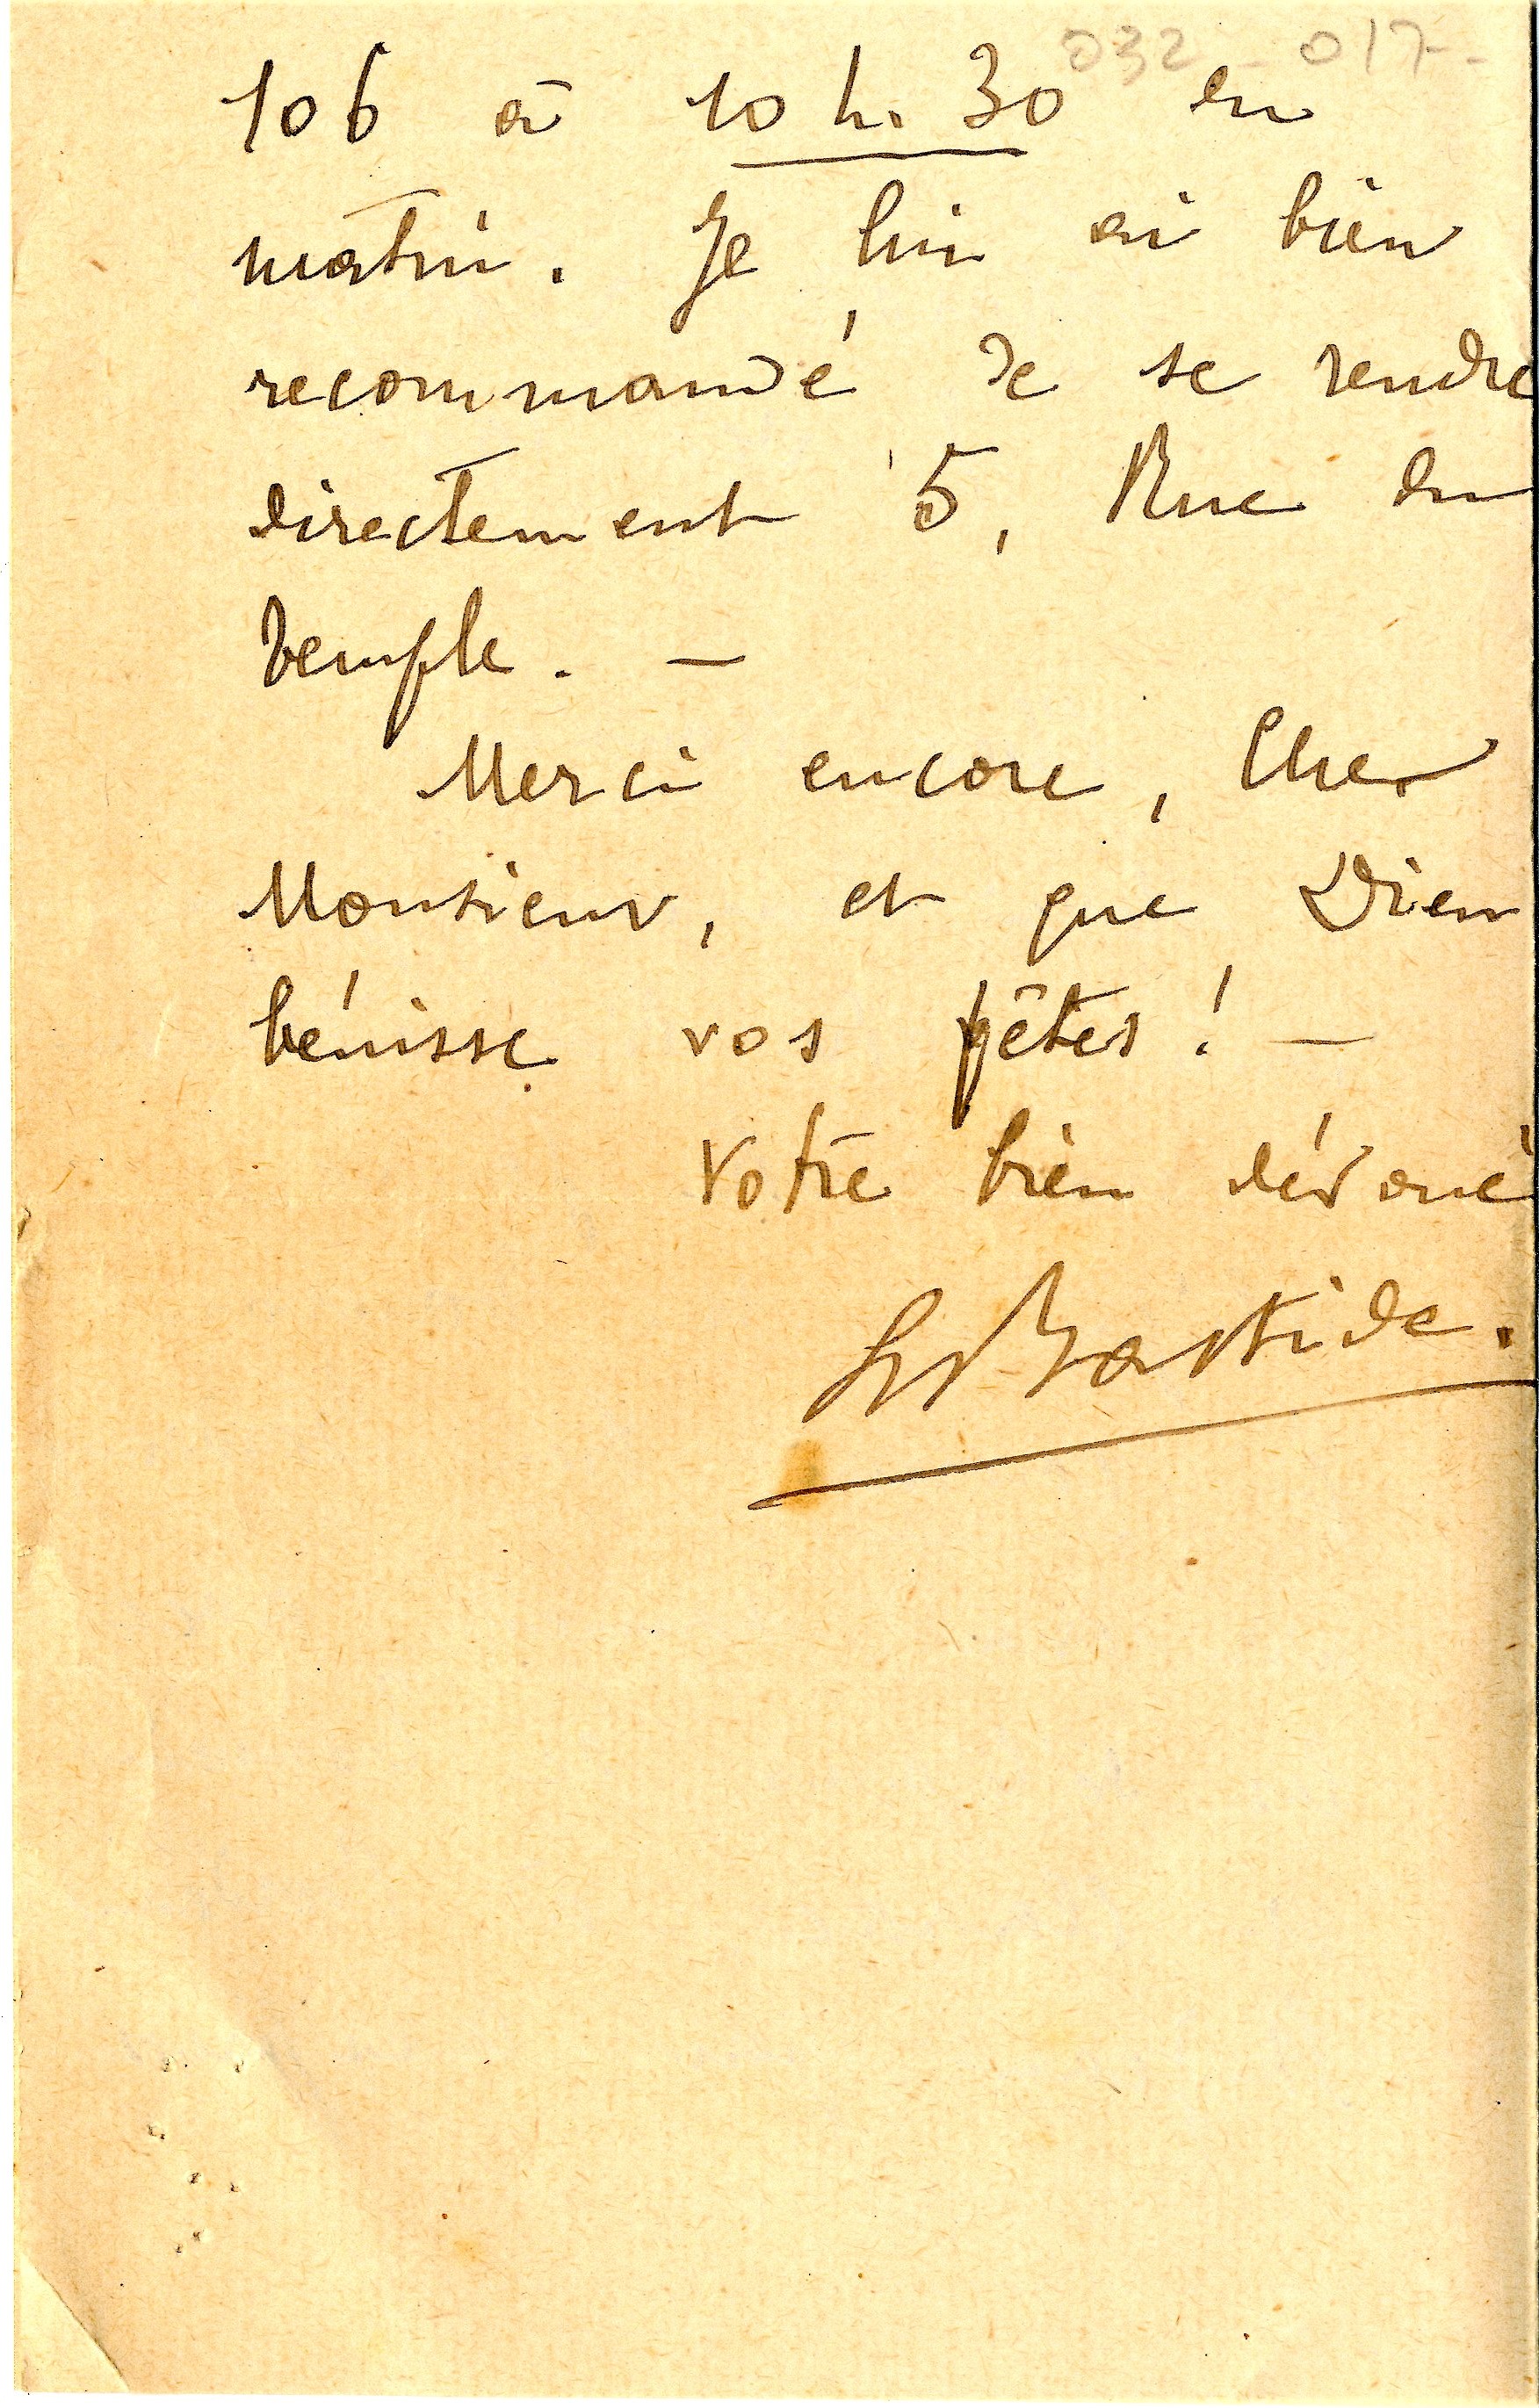 032 - 017 -
106 à 10 h. 30 du
matin. Je lui ai bien
recommandé de se rendre
directement 5, Rue du
Temple. —
Merci encore, Cher
Monsieur, et que Dieu
bénisse vos fêtes ! —
Votre bien dévoué
Bastide.